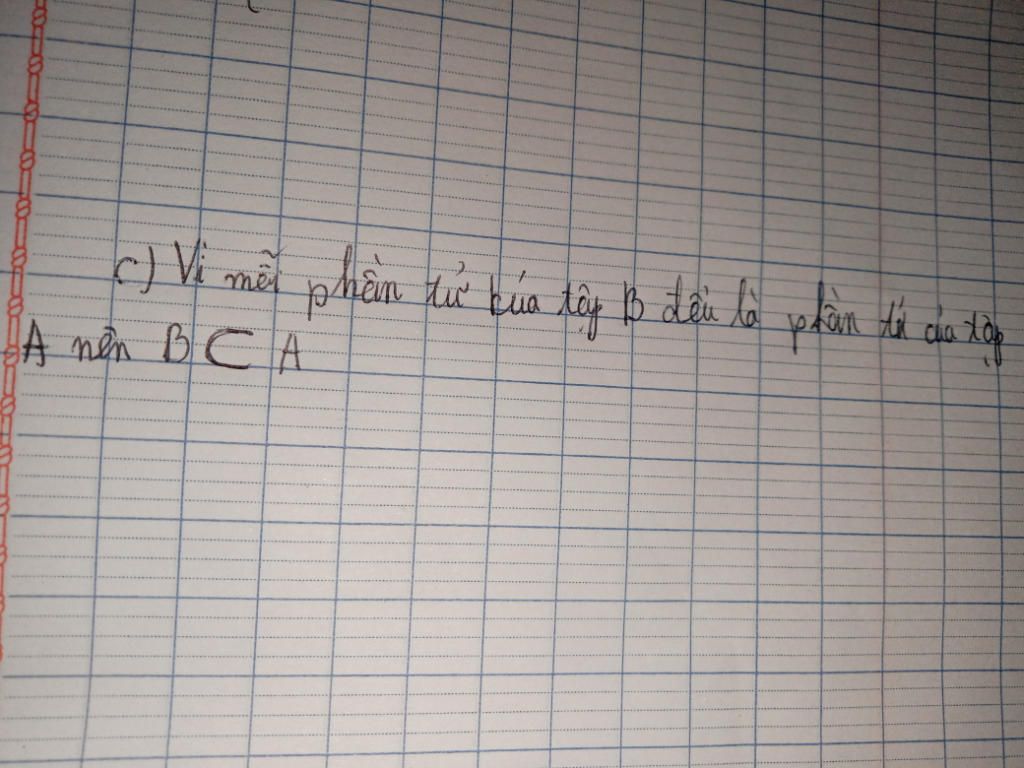 c) Vì mỗi phần tử của tập B đều là phần tử của tập
A nên B ⊂ A